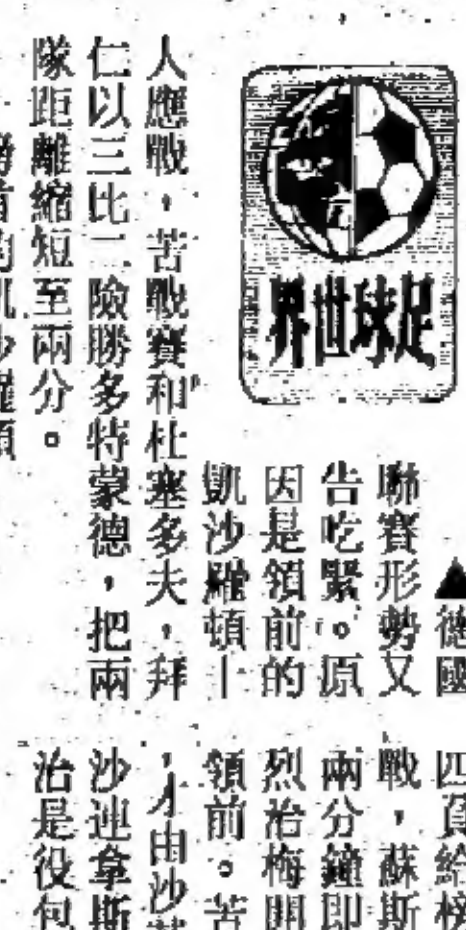 足球世界
▲德國
聯賽形勢又
告吃緊。原
因是領前的
凱沙羅頓十
人應戰,苦戰賽和杜塞多夫,拜
仁以三比二險勝多特蒙德,把兩
隊距離縮短至兩分。
四負給榜
戰,蘇斯
兩分鐘即
烈治梅開
領前。苦
,才由沙
沙連拿斯
治是役包